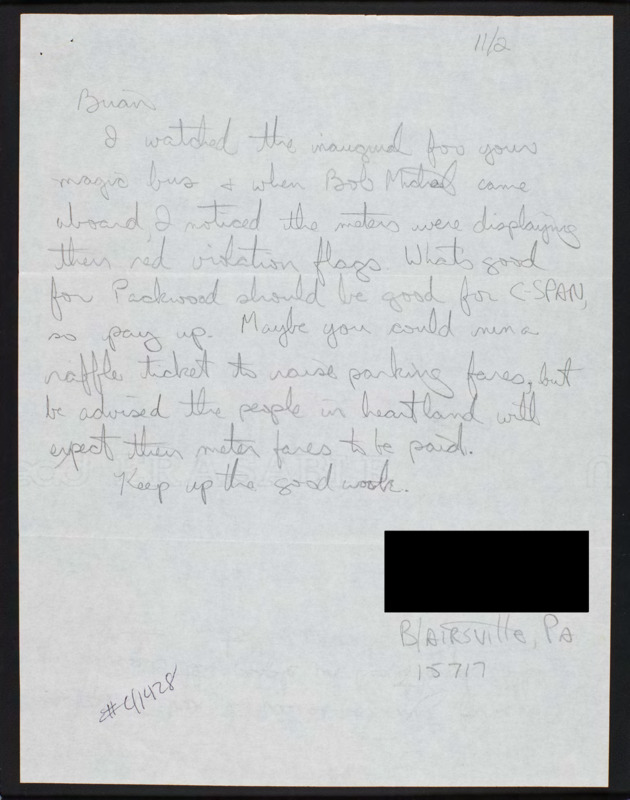 11/2
Brian
I watched the inaugural for your
magic bus & when Bob Michel came
aboard, I noticed the meters were displaying
their red violation flags. Whats good
for Packwood should be good for C-SPAN,
so pay up. Maybe you could run a
raffle ticket to raise parking fares, but
be advised the people in heartland will
expect their meter fares to be paid.
Keep up the good work.
Blairsville, PA
15717